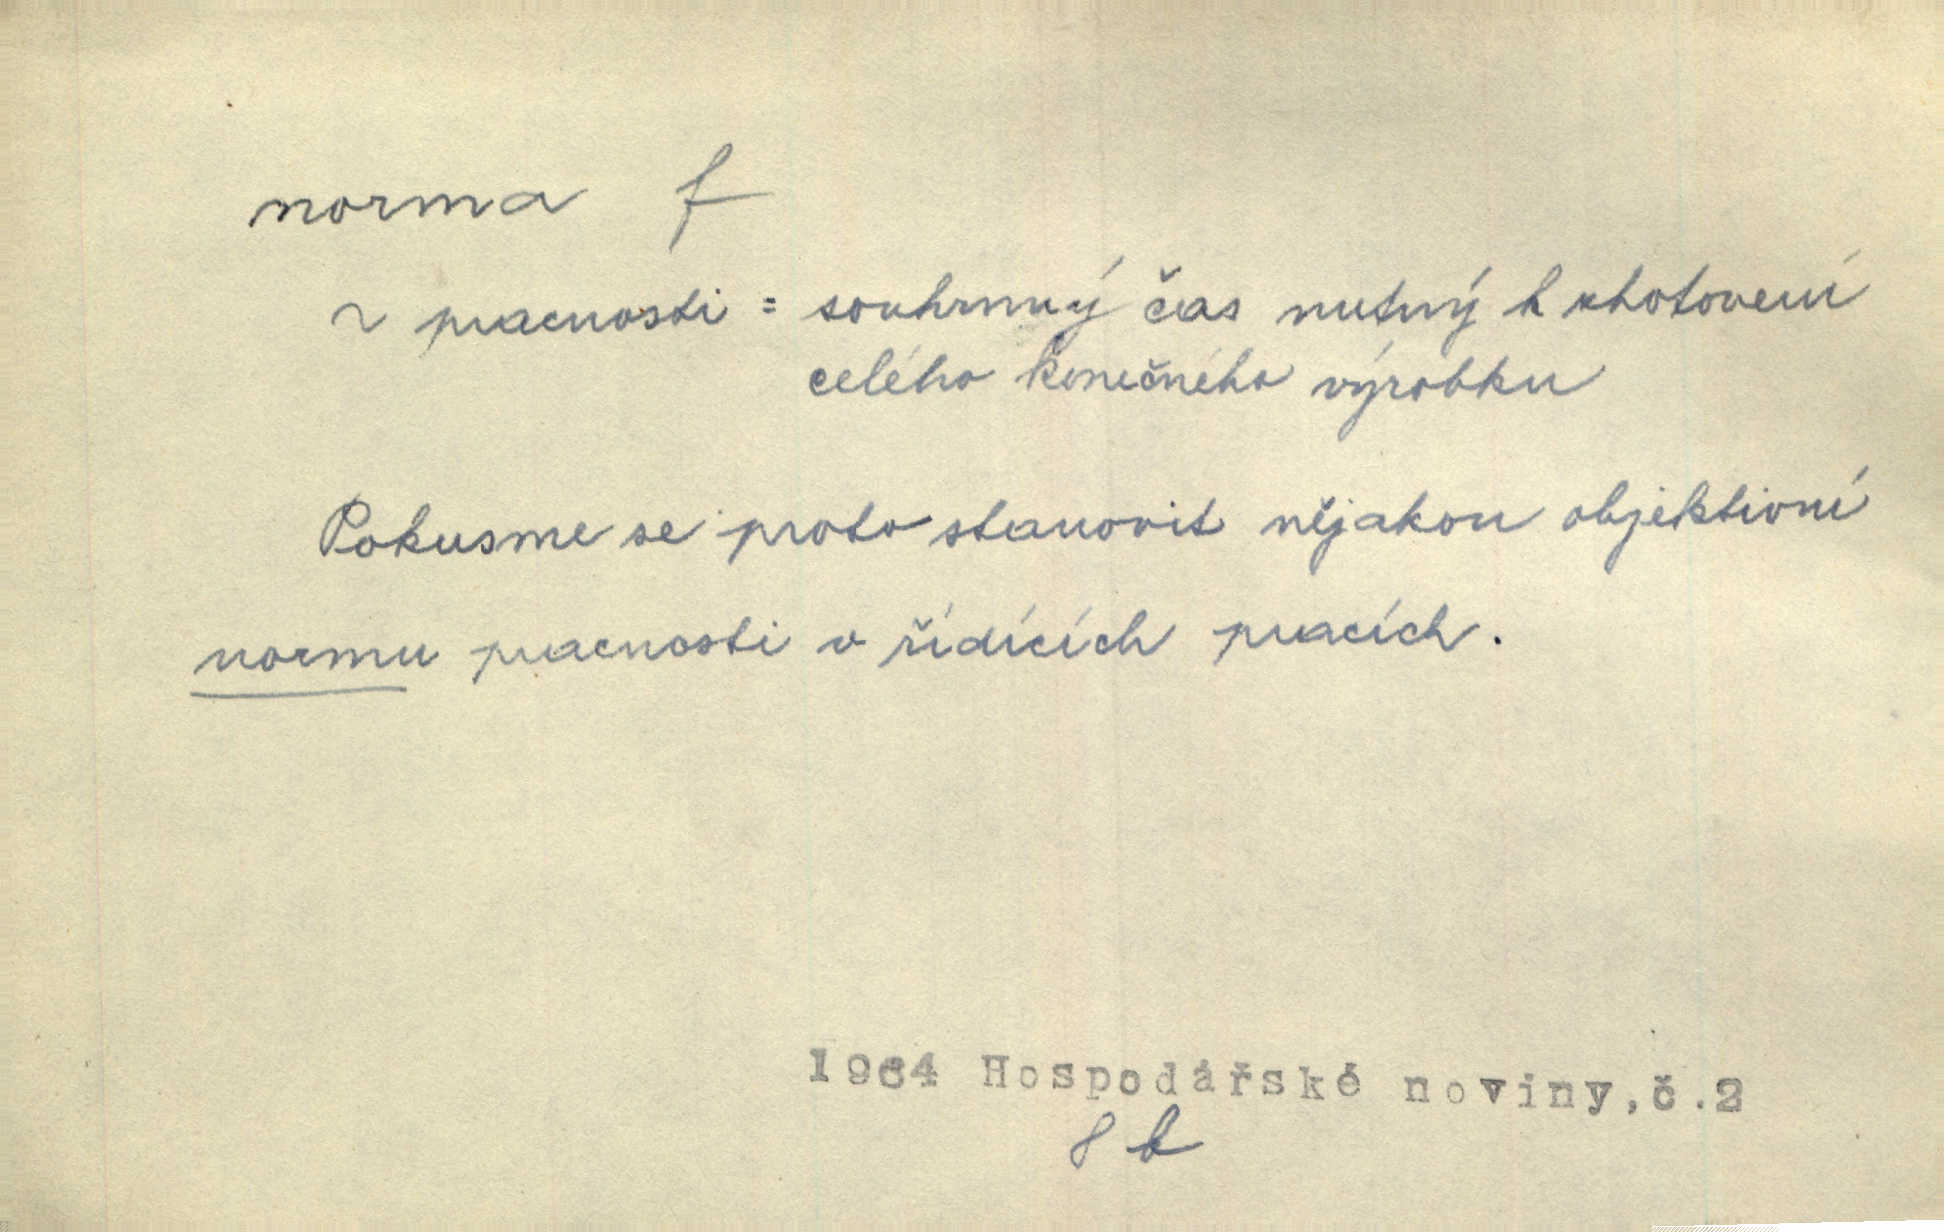 norma f
~ pracnosti = souhrnný čas nutný k zhotovení
celého konečného výrobku
Pokusme se proto stanovit nějakou objektivní
normu pracnosti v řídících pracích.
1964 Hospodářské noviny, č.2
8 b